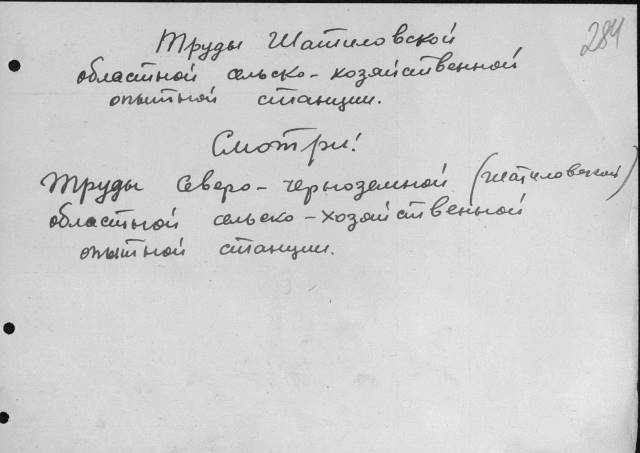 284
Труды Шатиловской
областной сельско-хозяйственной
опытной станции.
Смотри!
Труды Северо-черноземной (Шатиловской)
областной сельско-хозяйственной
опытной станции.